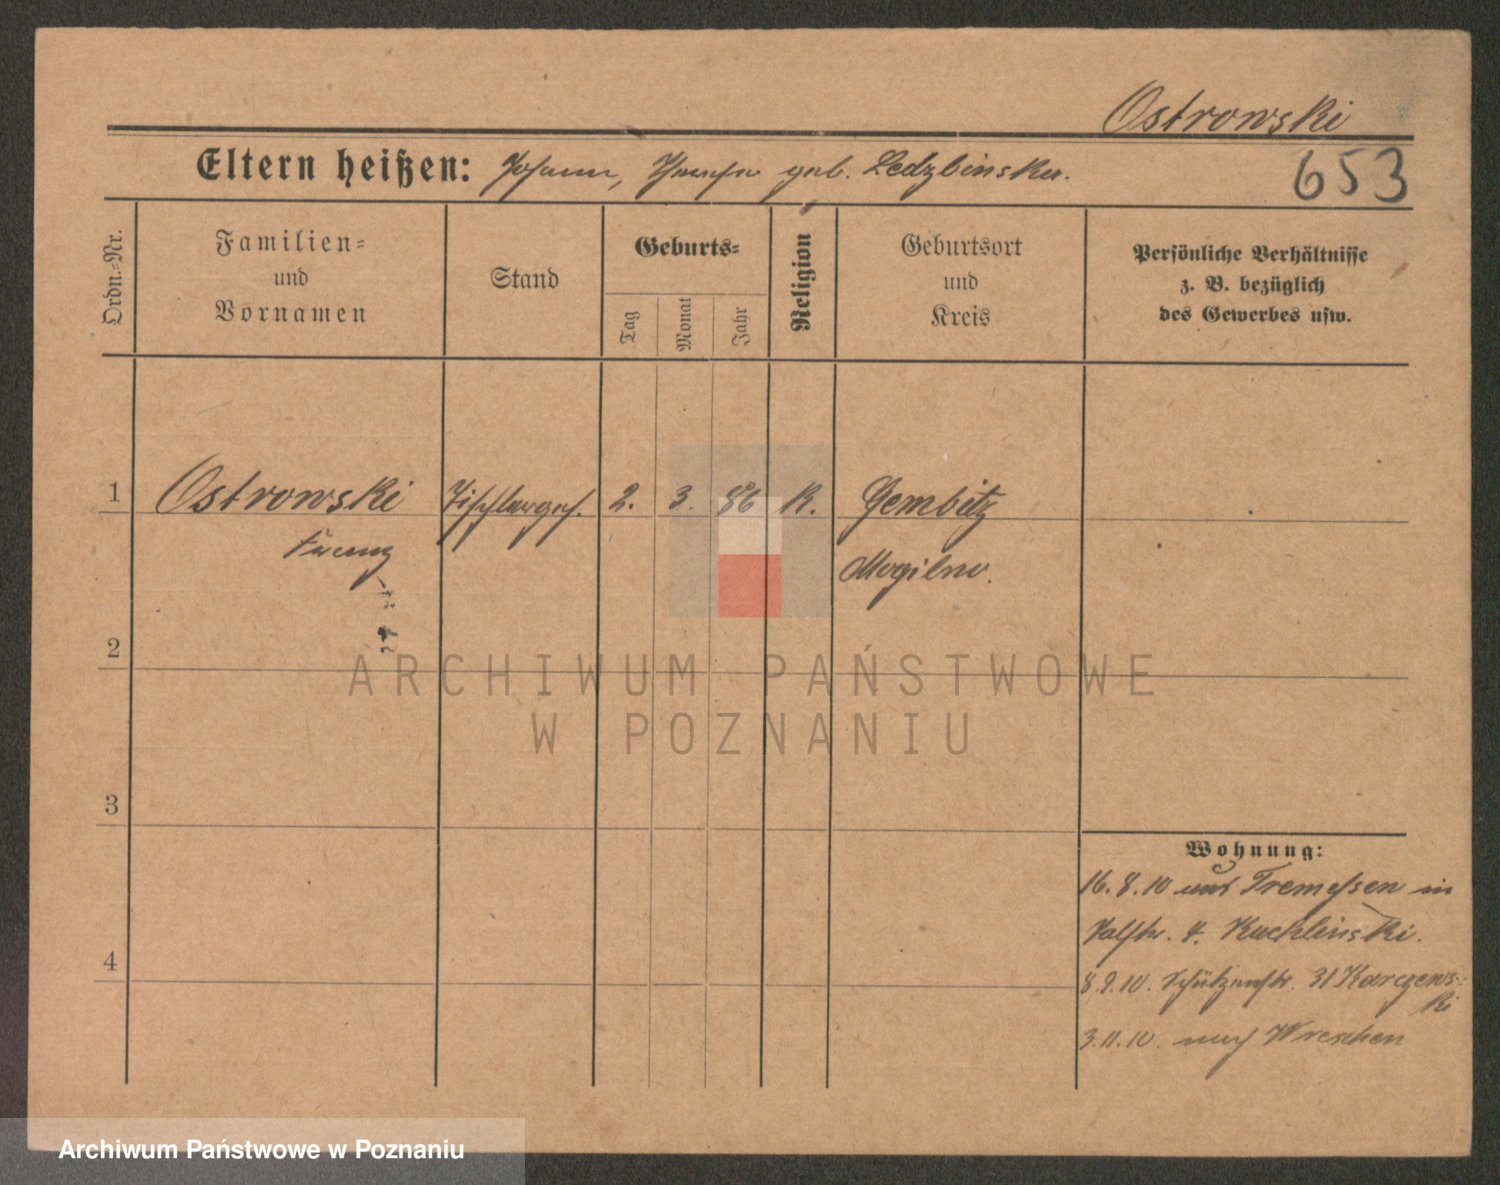 Ostrowski
Eltern heißen: Johann, geb. Ledzbinska.
653
Ordn.-Nr.
Familien-
und
Vornamen
Stand
Geburts-
Tag
Monat
Jahr
Religion
Geburtsort
und
Kreis
Persönliche Verhältnisse
z. B. bezüglich
des Gewerbes usw.
1 Ostrowski Tischlerges. 2. 3. 86 K. Gembitz
Franz Mogilno.
2
ARCHIWUM PAŃSTWOWE
W POZNANIU
3
Wohnung:
16.8.10 aus Tremessen in
4. Kuchlinski.
4
8.9.10. Schützenstr. 31 Karczews-
ki
3.11.10. nach Wreschen
Archiwum Państwowe w Poznaniu